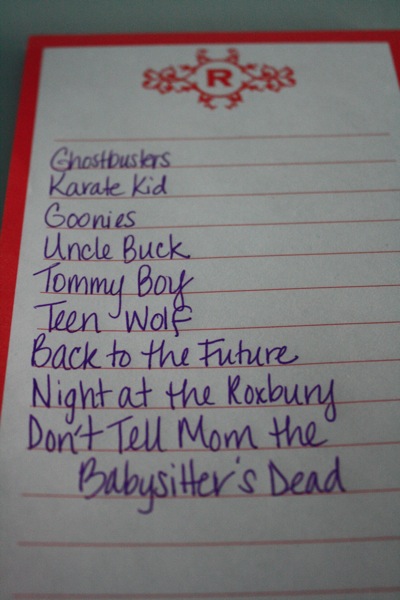 R
Ghostbusters
Karate Kid
Goonies
Uncle Buck
Tommy Boy
Teen Wolf
Back to the Future
Night at the Roxbury
Don't Tell Mom the
Babysitter's Dead